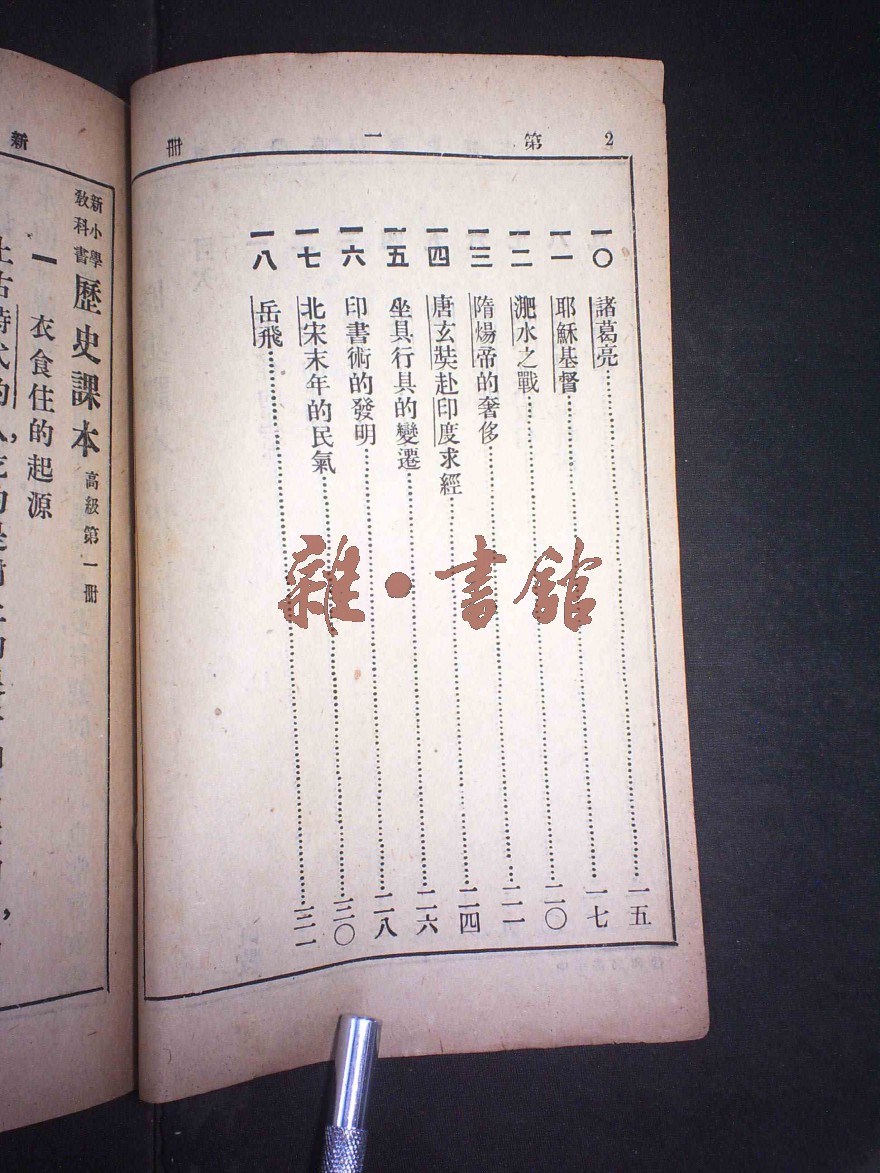 2 第一冊
一〇 諸葛亮……一五
一一 耶穌基督……一七
一二 淝水之戰……二〇
一三 隋煬帝的奢侈……二二
一四 唐玄奘赴印度求經……二四
一五 坐具行具的變遷……二六
一六 印書術的發明……二八
一七 北宋末年的民氣……三〇
一八 岳飛……三二
雜·書館
新
新小學教科書 歷史課本 高級第一冊
一 衣食住的起源
上古時代的人，